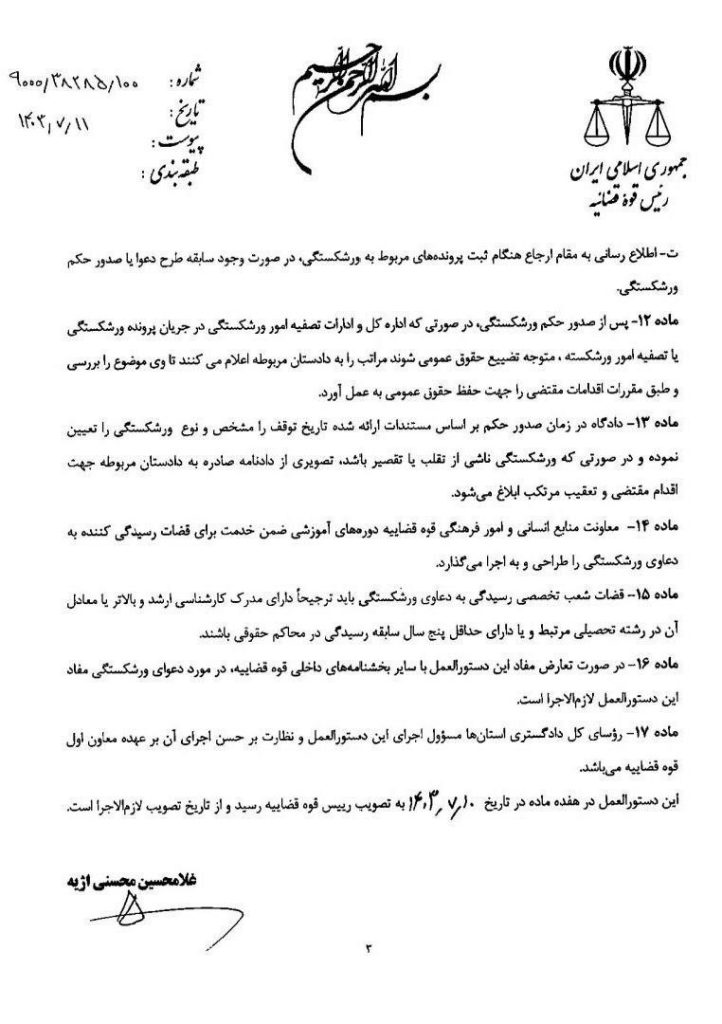 بسم الله الرحمن الرحیم
جمهوری اسلامی ایران
رئیس قوهٔ قضائیه
شماره: ۹۰۰۰/۳۸۲۸۵/۱۰۰
تاریخ: ۱۴۰۳/۷/۱۱
پیوست:
طبقه‌بندی:
ت- اطلاع رسانی به مقام ارجاع هنگام ثبت پرونده‌های مربوط به ورشکستگی، در صورت وجود سابقه طرح دعوا یا صدور حکم
ورشکستگی.
ماده ۱۲- پس از صدور حکم ورشکستگی، در صورتی که اداره کل و ادارات تصفیه امور ورشکستگی در جریان پرونده ورشکستگی
یا تصفیه امور ورشکسته ، متوجه تضییع حقوق عمومی شوند مراتب را به دادستان مربوطه اعلام می کنند تا وی موضوع را بررسی
و طبق مقررات اقدامات مقتضی را جهت حفظ حقوق عمومی به عمل آورد.
ماده ۱۳- دادگاه در زمان صدور حکم بر اساس مستندات ارائه شده تاریخ توقف را مشخص و نوع ورشکستگی را تعیین
نموده و در صورتی که ورشکستگی ناشی از تقلب یا تقصیر باشد، تصویری از دادنامه صادره به دادستان مربوطه جهت
اقدام مقتضی و تعقیب مرتکب ابلاغ می‌شود.
ماده ۱۴- معاونت منابع انسانی و امور فرهنگی قوه قضاییه دوره‌های آموزشی ضمن خدمت برای قضات رسیدگی کننده به
دعاوی ورشکستگی را طراحی و به اجرا می‌گذارد.
ماده ۱۵- قضات شعب تخصصی رسیدگی به دعاوی ورشکستگی باید ترجیحاً دارای مدرک کارشناسی ارشد و بالاتر یا معادل
آن در رشته تحصیلی مرتبط و یا دارای حداقل پنج سال سابقه رسیدگی در محاکم حقوقی باشند.
ماده ۱۶- در صورت تعارض مفاد این دستورالعمل با سایر بخشنامه‌های داخلی قوه قضاییه، در مورد دعوای ورشکستگی مفاد
این دستورالعمل لازم‌الاجرا است.
ماده ۱۷- رؤسای کل دادگستری استان‌ها مسؤول اجرای این دستورالعمل و نظارت بر حسن اجرای آن بر عهده معاون اول
قوه قضاییه می‌باشد.
این دستورالعمل در هفده ماده در تاریخ ۱۴۰۳/۷/۱۰ به تصویب رییس قوه قضاییه رسید و از تاریخ تصویب لازم‌الاجرا است.
غلامحسین محسنی اژیه
۳